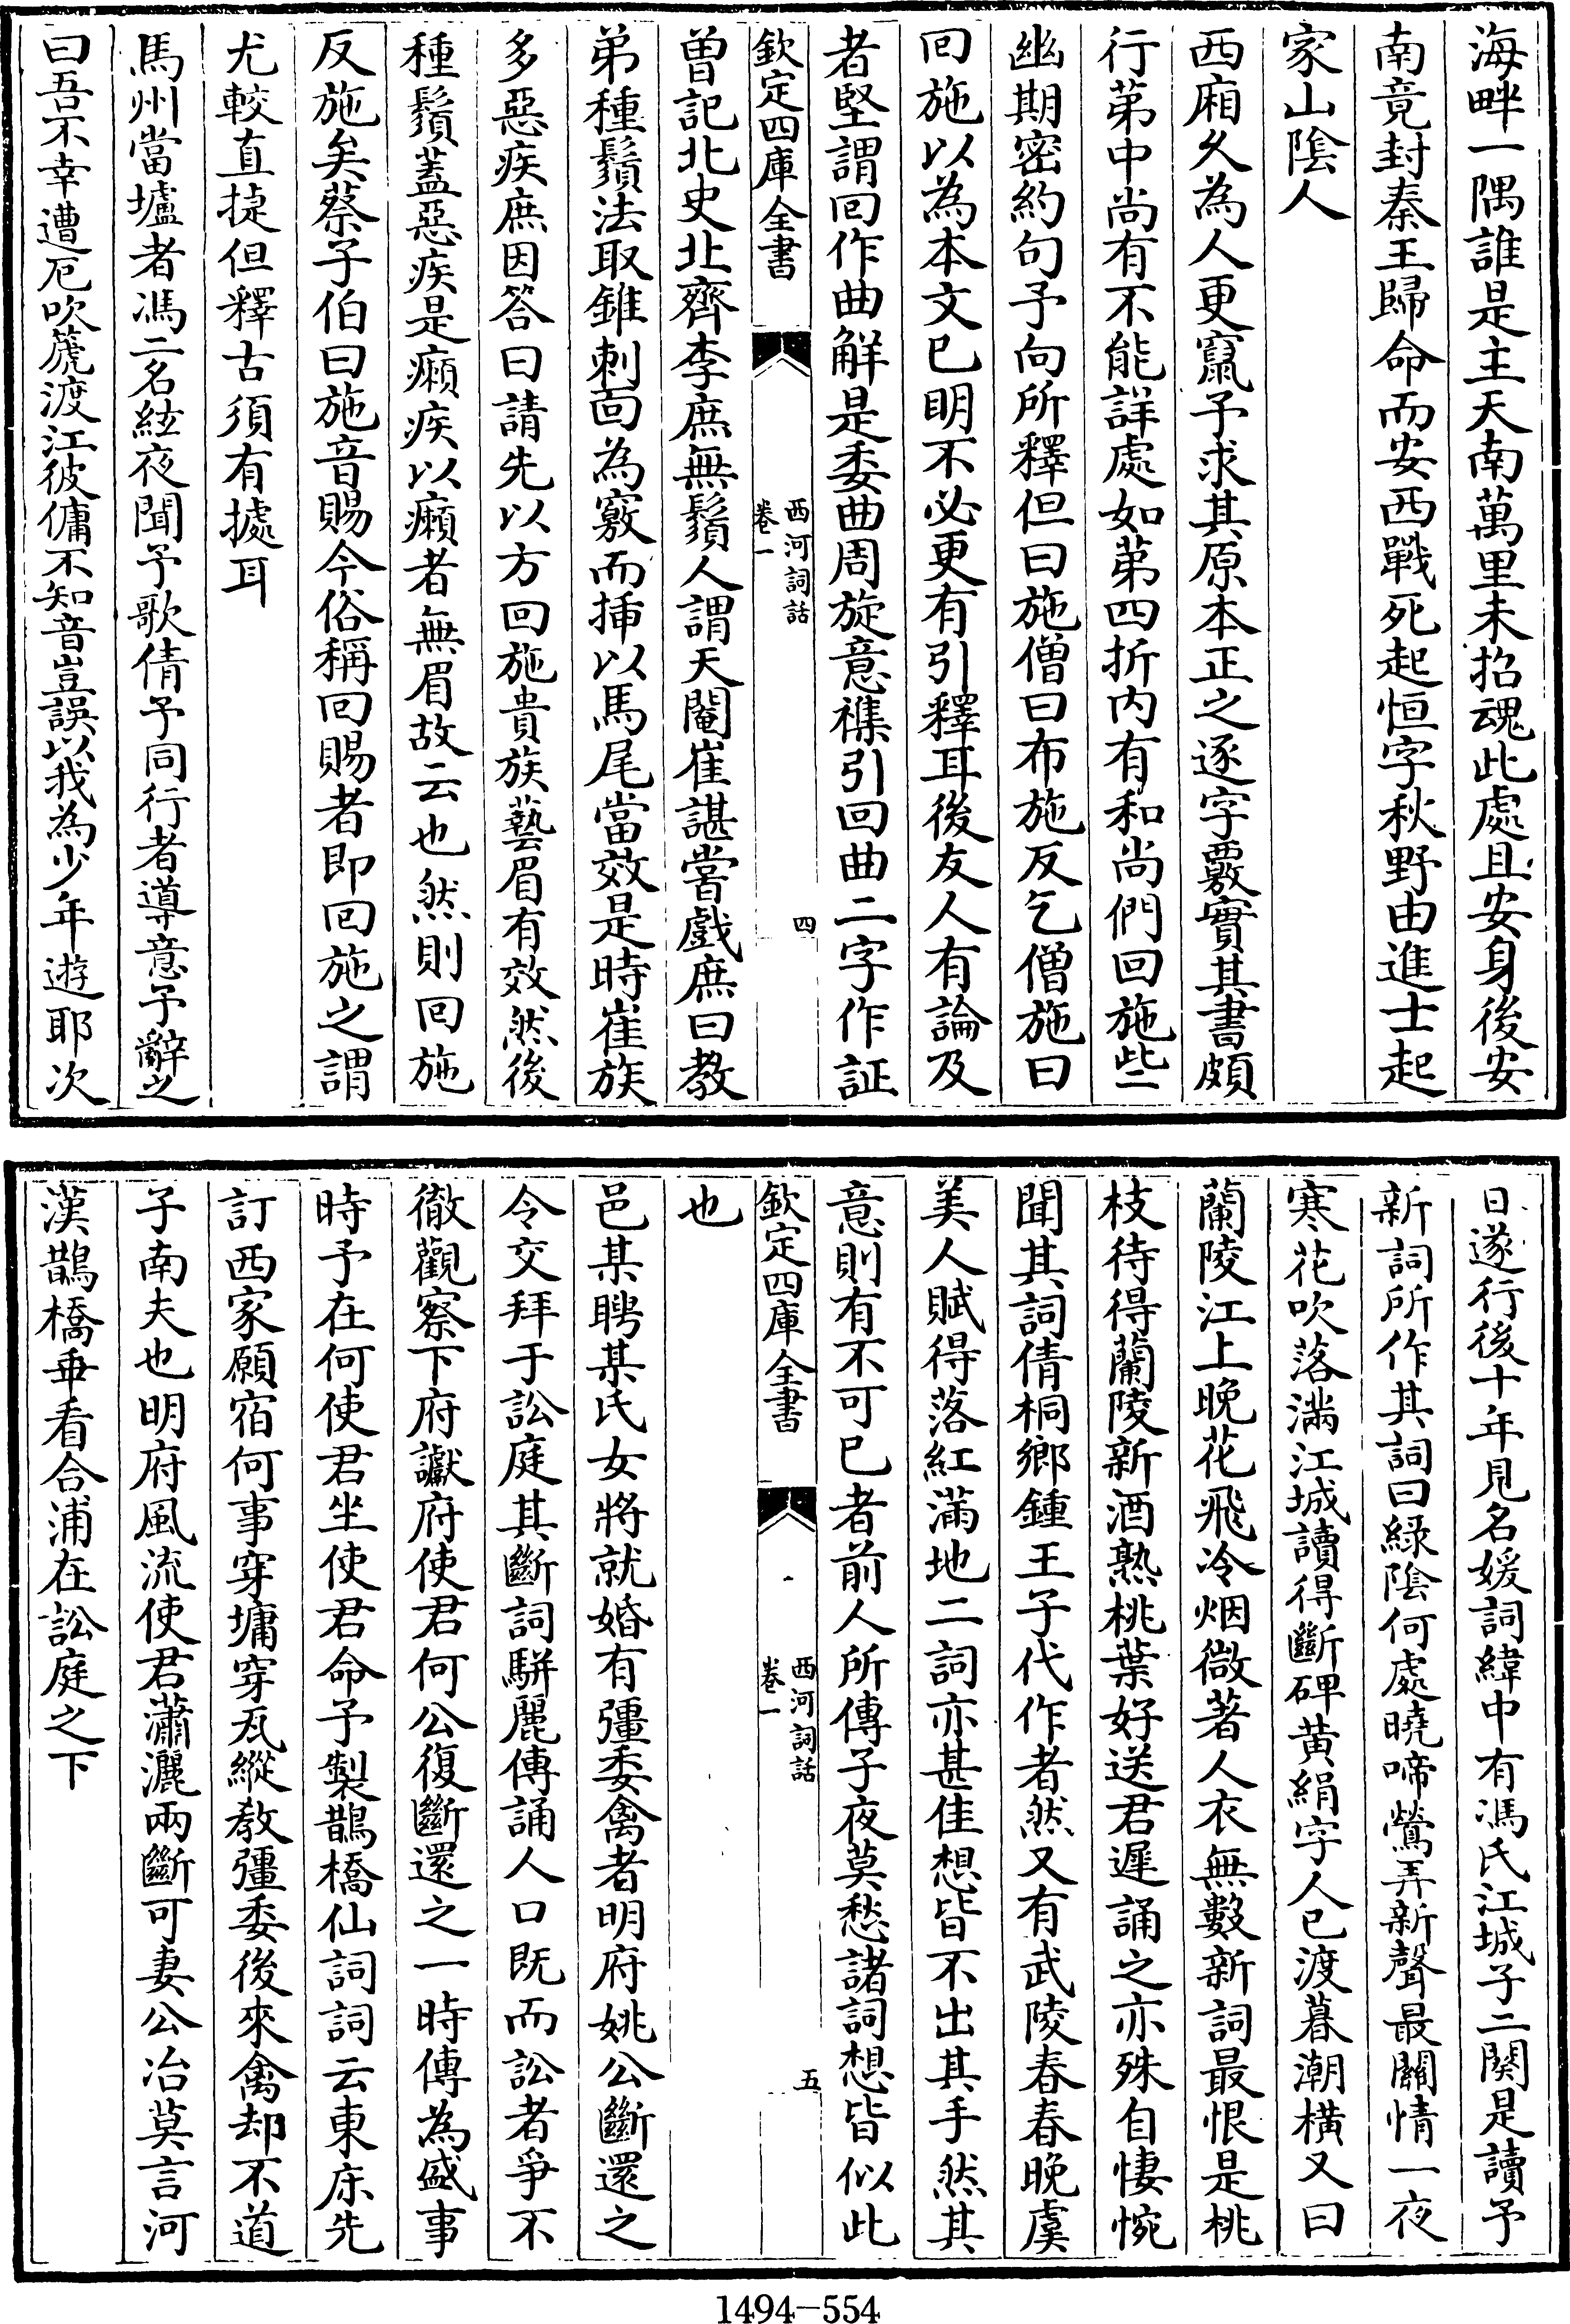 海畔一隅誰是主天南萬里未招魂此處且安身後安
南竟封秦王歸命而安西戰死起恒字秋野由進士起
家山隂人
西廂久為人更竄予求其原本正之逐字覈實其書頗
行第中尚有不能詳處如第四折内有和尚們回施些
幽期密約句予向所釋但曰施僧曰布施反乞僧施曰
回施以為本文已明不必更有引釋耳後友人有論及
者堅謂回作曲解是委曲周旋意襍引回曲二字作証
欽定四庫全書
西河詞話
卷一
四
曾記北史北齊李庶無鬚人謂天閹崔諶嘗戲庶曰教
弟種鬚法取錐刺面為竅而揷以馬尾當效是時崔族
多惡疾庶因答曰請先以方回施貴族藝眉有效然後
種鬚蓋惡疾是癩疾以癩者無眉故云也然則回施
反施矣蔡子伯曰施音賜今俗稱回賜者即回施之謂
尤較直捷但釋古須有據耳
馬州當壚者馮二名絃夜聞予歌倩予同行者導意予辭之
曰吾不幸遭厄吹篪渡江彼傭不知音豈誤以我為少年遊耶次
日遂行後十年見名媛詞緯中有馮氏江城子二闋是讀予
新詞所作其詞曰緑隂何處曉啼鶯弄新聲最關情一夜
寒花吹落滿江城讀得斷碑黄絹字人已渡暮潮横又曰
蘭陵江上晚花飛冷烟微著人衣無數新詞最恨是桃
枝待得蘭陵新酒熟桃葉好送君遲誦之亦殊自悽惋
聞其詞倩桐鄉鍾王子代作者然又有武陵春春晚虞
美人賦得落紅滿地二詞亦甚佳想皆不出其手然其
意則有不可已者前人所傳子夜莫愁諸詞想皆似此
欽定四庫全書
西河詞話
卷一
五
也
邑某聘某氏女將就婚有彊委禽者明府姚公斷還之
令交拜于訟庭其斷詞駢麗傳誦人口既而訟者爭不
徹觀察下府讞府使君何公復斷還之一時傳為盛事
時予在何使君坐使君命予製鵲橋仙詞詞云東床先
訂西家願宿何事穿墉穿瓦縱教彊委後來禽却不道
子南夫也明府風流使君瀟灑兩斷可妻公冶莫言河
漢鵲橋乖看合浦在訟庭之下
1494-554